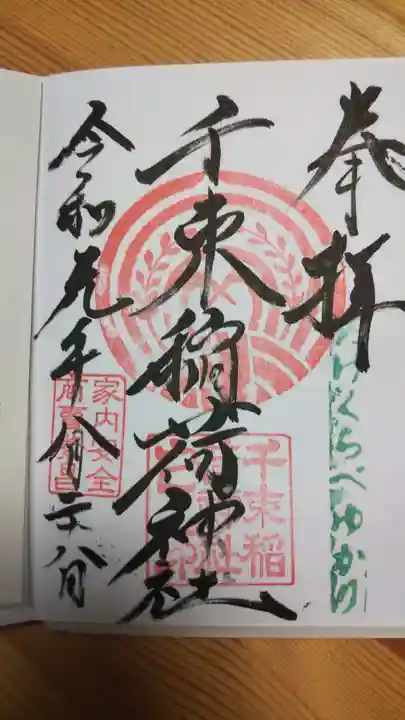 奉拝
たけくらべゆかり
千束稲荷神社
千束稲
荷神社
令和元年八月二十八日
家内安全
商売繁昌